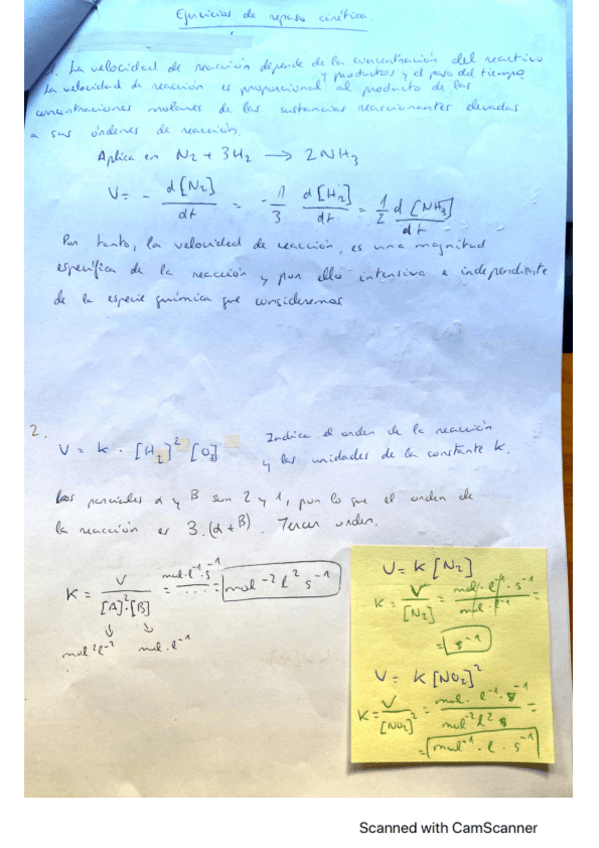 Ejercicios de repaso cinética.
1. La velocidad de reacción depende de la concentración del reactivo
y productos y el paso del tiempo
La velocidad de reacción es proporcional al producto de las
concentraciones molares de las sustancias reaccionantes elevadas
a sus órdenes de reacción.
Aplica en N₂ + 3H₂ → 2NH₃
V = - d[N₂]/dt = - 1/3 d[H₂]/dt = 1/2 d[NH₃]/dt
Por tanto, la velocidad de reacción, es una magnitud
específica de la reacción y por ello intensiva e independiente
de la especie química que consideremos
2.
V = k · [H₂]² [O₂] Indica el orden de la reacción
y las unidades de la constante K.
Los parciales α y β son 2 y 1, por lo que el orden de
la reacción es 3. (α+β). Tercer orden.
K = V/[A]²·[B] = mol·l⁻¹·s⁻¹/...... = mol⁻² l² s⁻¹
mol²l⁻² mol·l⁻¹
V = K [N₂]
K = V/[N₂] = mol·l⁻¹·s⁻¹/mol·l⁻¹ =
= s⁻¹
V = K [NO₂]²
K = V/[NO₂]² = mol·l⁻¹·s⁻¹/mol⁻² l² s =
= mol⁻¹·l·s⁻¹
Scanned with CamScanner